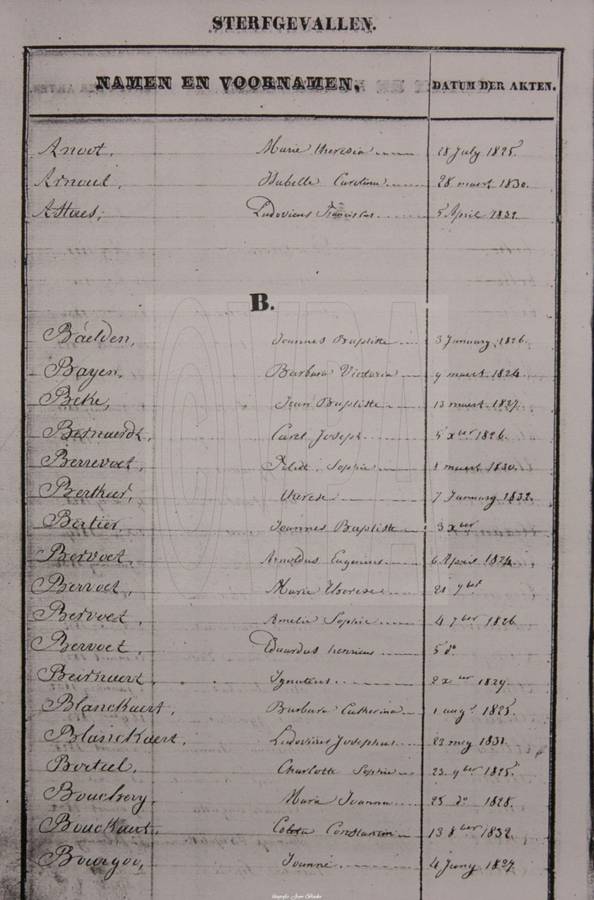 STERFGEVALLEN.
NAMEN EN VOORNAMEN. DATUM DER AKTEN.
Anoot, Marie theresia 28 July 1825.
Arnout, Isabelle Carolina 28 maert 1830.
Attaes, Ludovicus Franciscus 5 April 1832.
B.
Baelden, Joannes Baptiste 3 January 1826.
Bayen, Barbara Victoria 9 maert 1824
Beke, Jean Baptiste 13 maert 1827.
Bernaerdt, Carel Joseph 5 xber 1826.
Berrevoet, Sophie 1 maert 1830.
Bertheer, therese 7 January 1832.
Bertier, Joannes Baptiste 3 xber
Bervoet, Arnoldus Eugenius 6 April 1824.
Bervoet, Marie Therese 21 7ber
Bervoet, Amelie Sophie 4 7ber 1826
Bervoet, Eduardus henricus 5 do
Ignatius 2 xber 1829.
Blanckaert, Barbara Catherina 1 augt 1825.
Blanckaert, Ludovicus Josephus 22 mey 1831.
Charlotte Sophie 23 9ber 1825.
Marie Joanna 25 do 1828.
Bouckaert, Constantin 13 8ber 1832
Bourgoo, Joanne 4 Juny 1827.